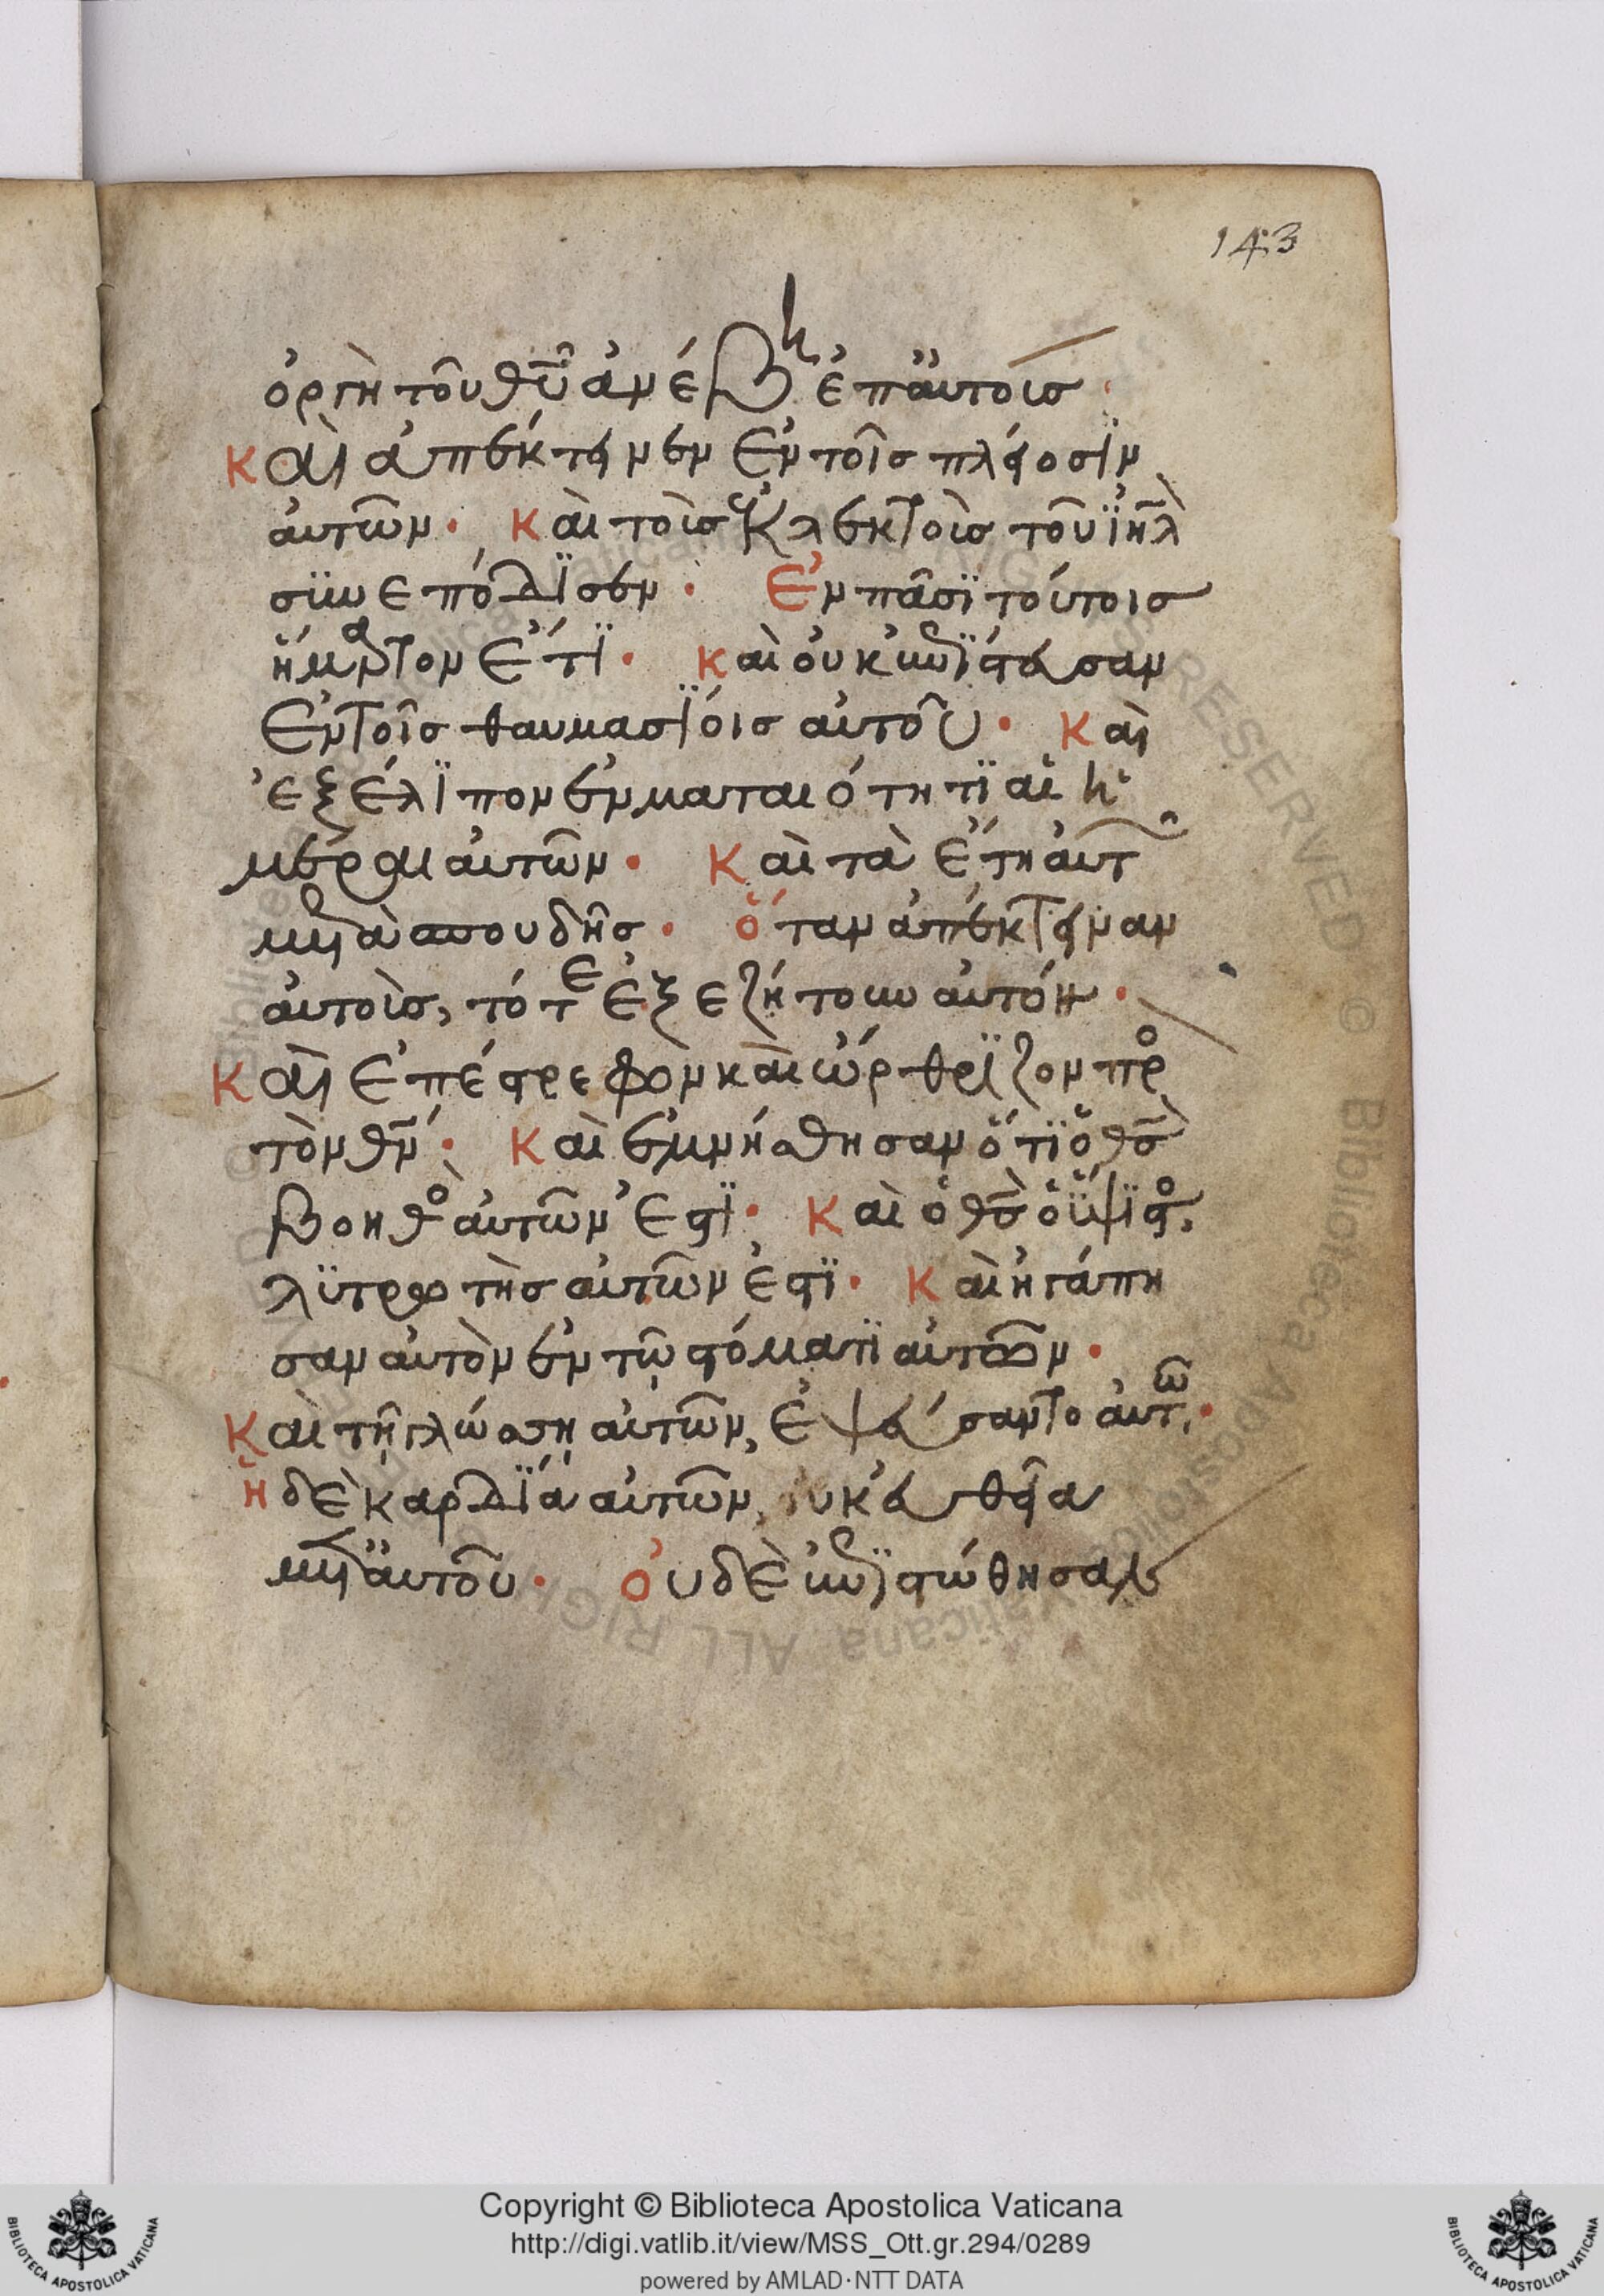 143
ὀργὴ τοῦ θῦ ἀνέβη ἐπ' αὐτοῖσ·
Καὶ ἀπέκτεινεν ἐν τοῖσ πλείοσϊν
αὐτῶν· καὶ τοὶσ ἐκλεκτοὶσ τοῦ ϊῆλ
συνεπόδϊσεν· Ἐν πᾶσϊ τούτοισ
ἥμαρτον ἔτϊ· καὶ οὐκ ἐπϊστευσαν
ἐν τοῖσ θαυμασϊόισ αὐτοῦ· Καὶ
ἐξέλϊπον ἐν ματαιότητϊ αἱ ἡ
μέραι αὐτῶν· Καὶ τὰ ἔτη αὐτ
μετὰ σπουδῆσ· ὅταν ἀπέκτεινεν
αὐτοὶσ, τότε ἐξεζήτουν αὐτόν·
Καὶ ἐπέστρεφον καὶ ὤρθρϊζον πρ
τὸν θν· Καὶ ἐμνήσθησαν ὅτϊ ὁ θσ
βοηθὸ αὐτῶν ἐστϊ· Καὶ ὁ θσ ὁ ὕψϊστο,
λϋτρωτὴσ αὐτῶν ἐστϊ· Καὶ ἠγάπη
σαν αὐτὸν ἐν τῷ στόματϊ αὐτῶν·
Καὶ τῇ γλώσσῃ αὐτῶν, ἐψεύσαντο αὐτῶ,·
ἡ δὲ καρδϊά αὐτῶν, οὐκ εὐθεῖα
μετ' αὐτοῦ· οὐδὲ ἐπϊστώθησαν
Copyright © Biblioteca Apostolica Vaticana
http://digi.vatlib.it/view/MSS_Ott.gr.294/0289
powered by AMLAD·NTT DATA
BIBLIOTECA APOSTOLICA VATICANA
BIBLIOTECA APOSTOLICA VATICANA